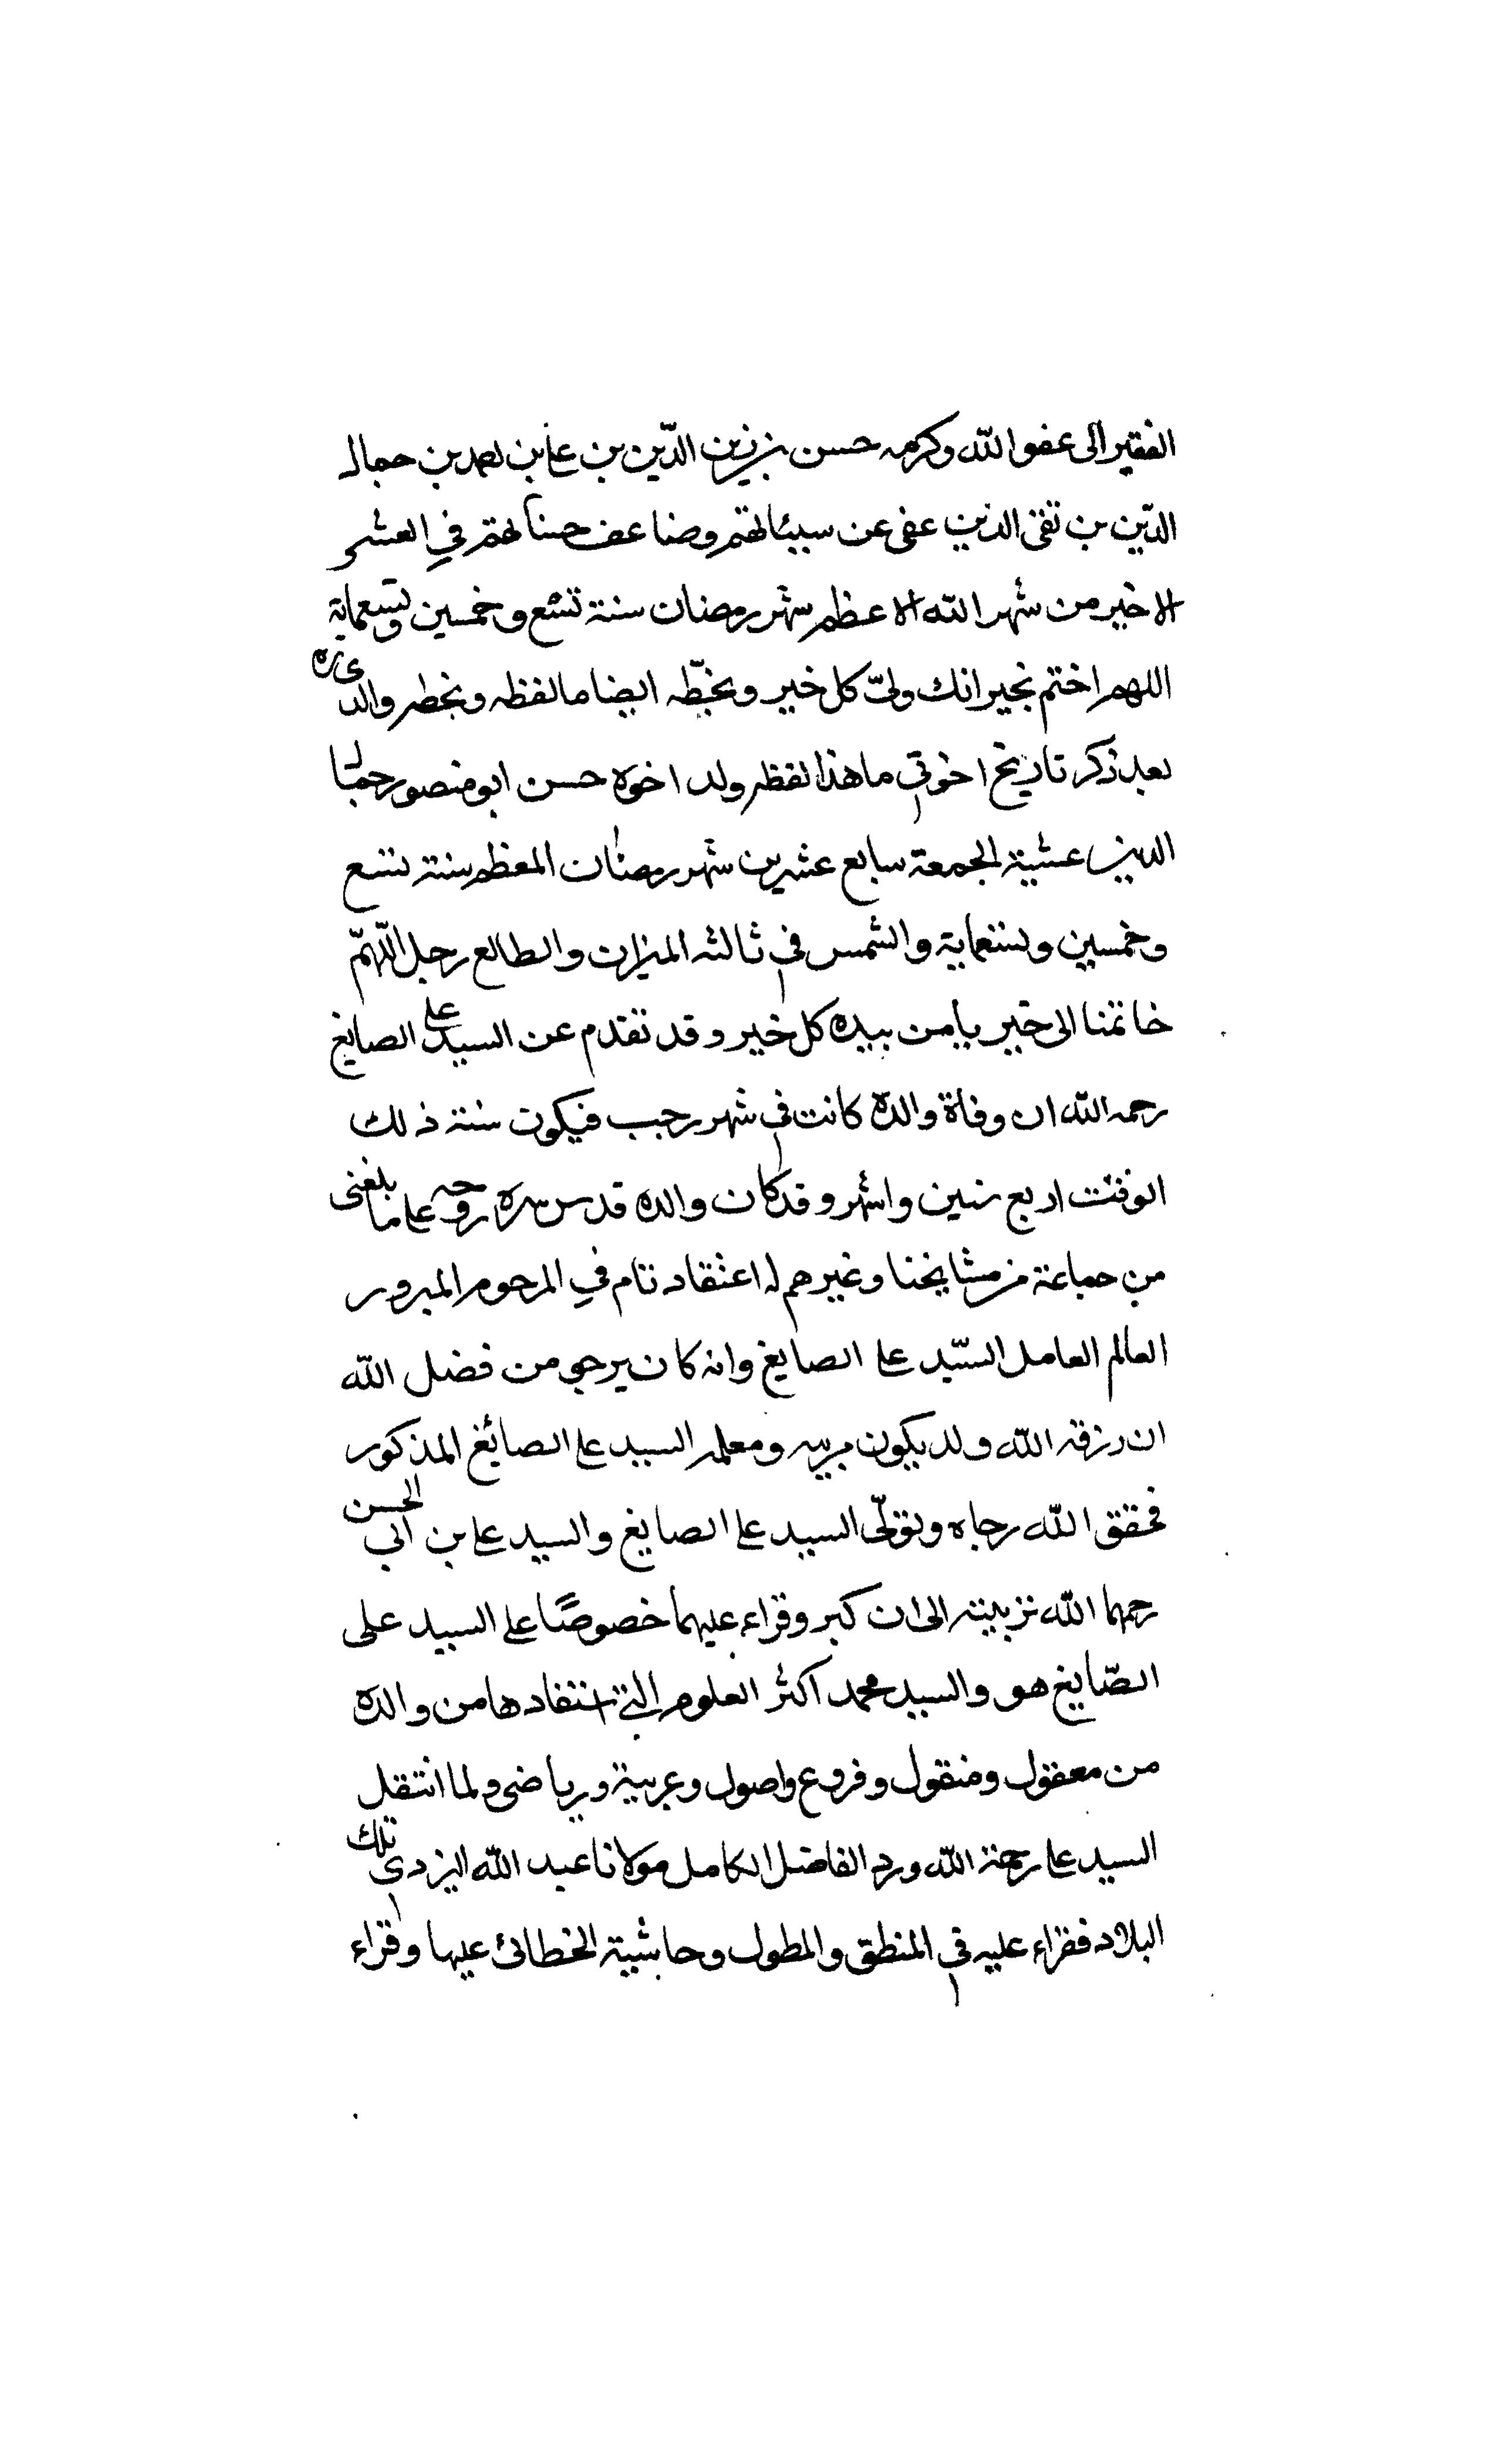 الفقير الى عفو الله وكرمه حسن بن زين الدّين بن على بن احمد بن جمال
الدّين بن تقى الدين عفى عن سيئاتهم وضاعف حسناتهم في العشر
الاخير من شهر الله الاعظم شهر رمضان سنة تسع وخمسين وتسعماية
اللهم اختم بخير انك وليّ كل خير وبخطّه ايضا ما لفظه وبخط والدى ره
بعد ذكر تاريخ اخوتي ما هذا لفظه ولد اخوه حسن ابو منصور جمال
الدين عشية الجمعة سابع عشرين شهر رمضان المعظم سنة تسع
وخمسين وتسعماية والشمس في ثالثه الميزان والطالع اللّهمّ
خاتمنا الى خير يا من بيده كل خير وقد تقدم عن السيد على الصايغ
رحمه الله ان وفاة والده كانت في شهر رجب فيكون سنة ذلك
الوقت اربع سنين واشهر وقد كان والده قدس سره روحه على ما بلغنى
من جماعة من مشايخنا وغيرهم له اعتقاد تام في المرحوم المبرور
العالم العامل السيّد على الصايغ وانه كان يرجو من فضل الله
ان رزقه الله ولد يكون مربيه ومعلمه السيد على الصائغ المذكور
فحقق الله رجاه وتولّى السيد على الصايغ والسيد على بن ابي الحسن
رحمهما الله تربيته الى ان كبر وقراء عليهما خصوصًا على السيد على
الصّايغ هو والسيد محمد اكثر العلوم التي استفادها من والده
من معقول ومنقول وفروع واصول وعربية ورياضى ولما انتقل
السيد على رحمة الله ورد الفاضل الكامل مولانا عبد الله اليزدي تلك
البلاد فقراء عليه في المنطق والمطول وحاشية الخطائى عليها وقراء